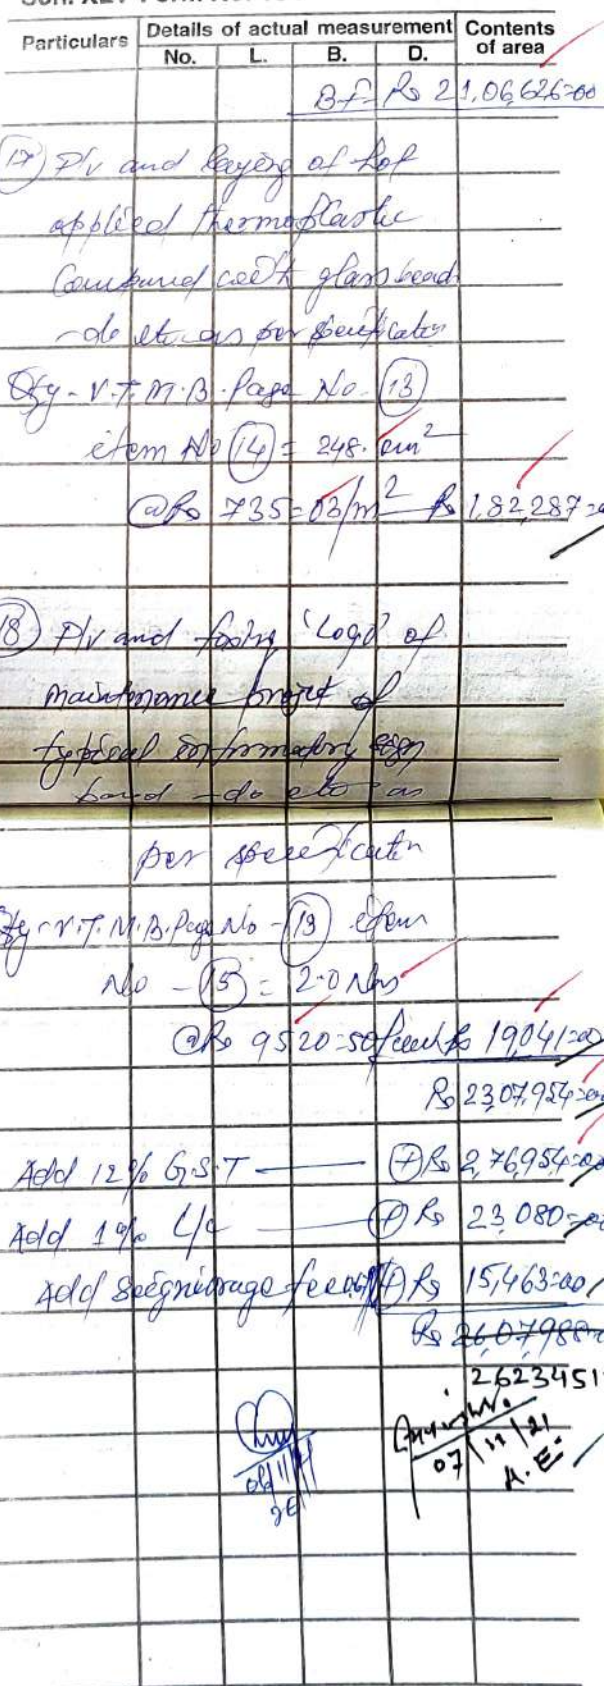 Particulars Details of actual measurement Contents of area
No. L. B. D.
B.F. Rs 21,06,626=00
(17) P/v and laying of hot
applied thermoplastic
Compound with glass bead
-do etc as per specification
Qty - V.T.M.B. Page No. (13)
item No (14) = 248. m²
@Rs 735=03/m² Rs 1,82,287=00
(18) P/v and fixing 'Logo' of
maintenance project of
typical informatory sign
board -do etc as
per specification
Qty - V.T.M.B. Page No - (13) item
No - (15) = 2.0 Nos
@Rs 9520=50/each Rs 19,041=00
Rs 23,07,954=00
Add 12% G.S.T — (+) Rs 2,76,954=00
Add 1% L/C — (+) Rs 23,080=00
Add Seigniorage fee (+) Rs 15,463=00
Rs 26,07,988=00
2623451
06/11/21
JE
07/11/21
A.E.